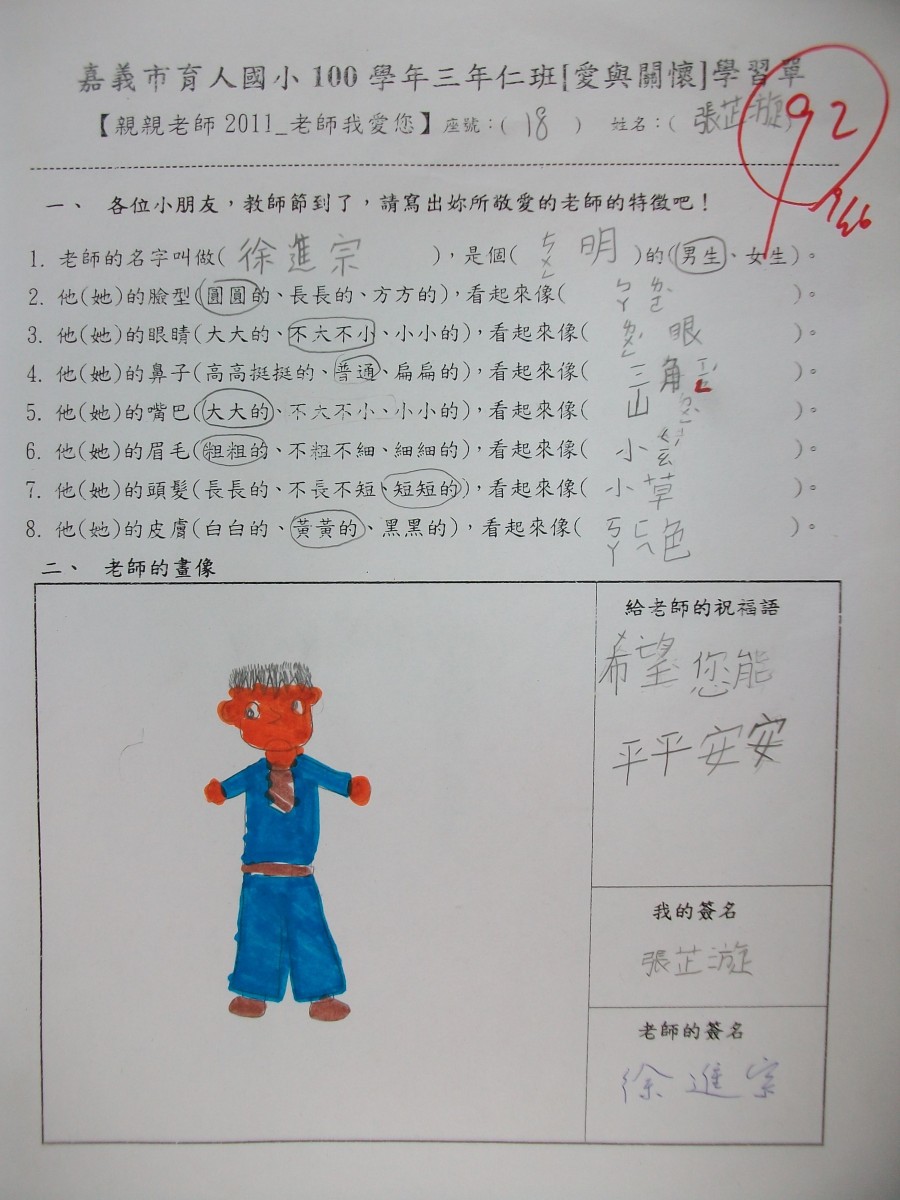 嘉義市育人國小100學年三年仁班[愛與關懷]學習單
【親親老師2011_老師我愛您】座號:( 18 ) 姓名:( 張芷漩)
92
一、 各位小朋友,教師節到了,請寫出妳所敬愛的老師的特徵吧!
1. 老師的名字叫做( 徐進宗 ),是個( ㄘㄨㄥ 明 )的(男生、女生)。
2. 他(她)的臉型(圓圓的、長長的、方方的),看起來像( )。
3. 他(她)的眼睛(大大的、不大不小、小小的),看起來像( 眼 )。
4. 他(她)的鼻子(高高挺挺的、普通、扁扁的),看起來像( 三角 )。
5. 他(她)的嘴巴(大大的、不大不小、小小的),看起來像( 山 )。
6. 他(她)的眉毛(粗粗的、不粗不細、細細的),看起來像( 小 )。
7. 他(她)的頭髮(長長的、不長不短、短短的),看起來像( 小草 )。
8. 他(她)的皮膚(白白的、黃黃的、黑黑的),看起來像( 色 )。
二、 老師的畫像
給老師的祝福語
希望您能
平平安安
我的簽名
張芷漩
老師的簽名
徐進宗